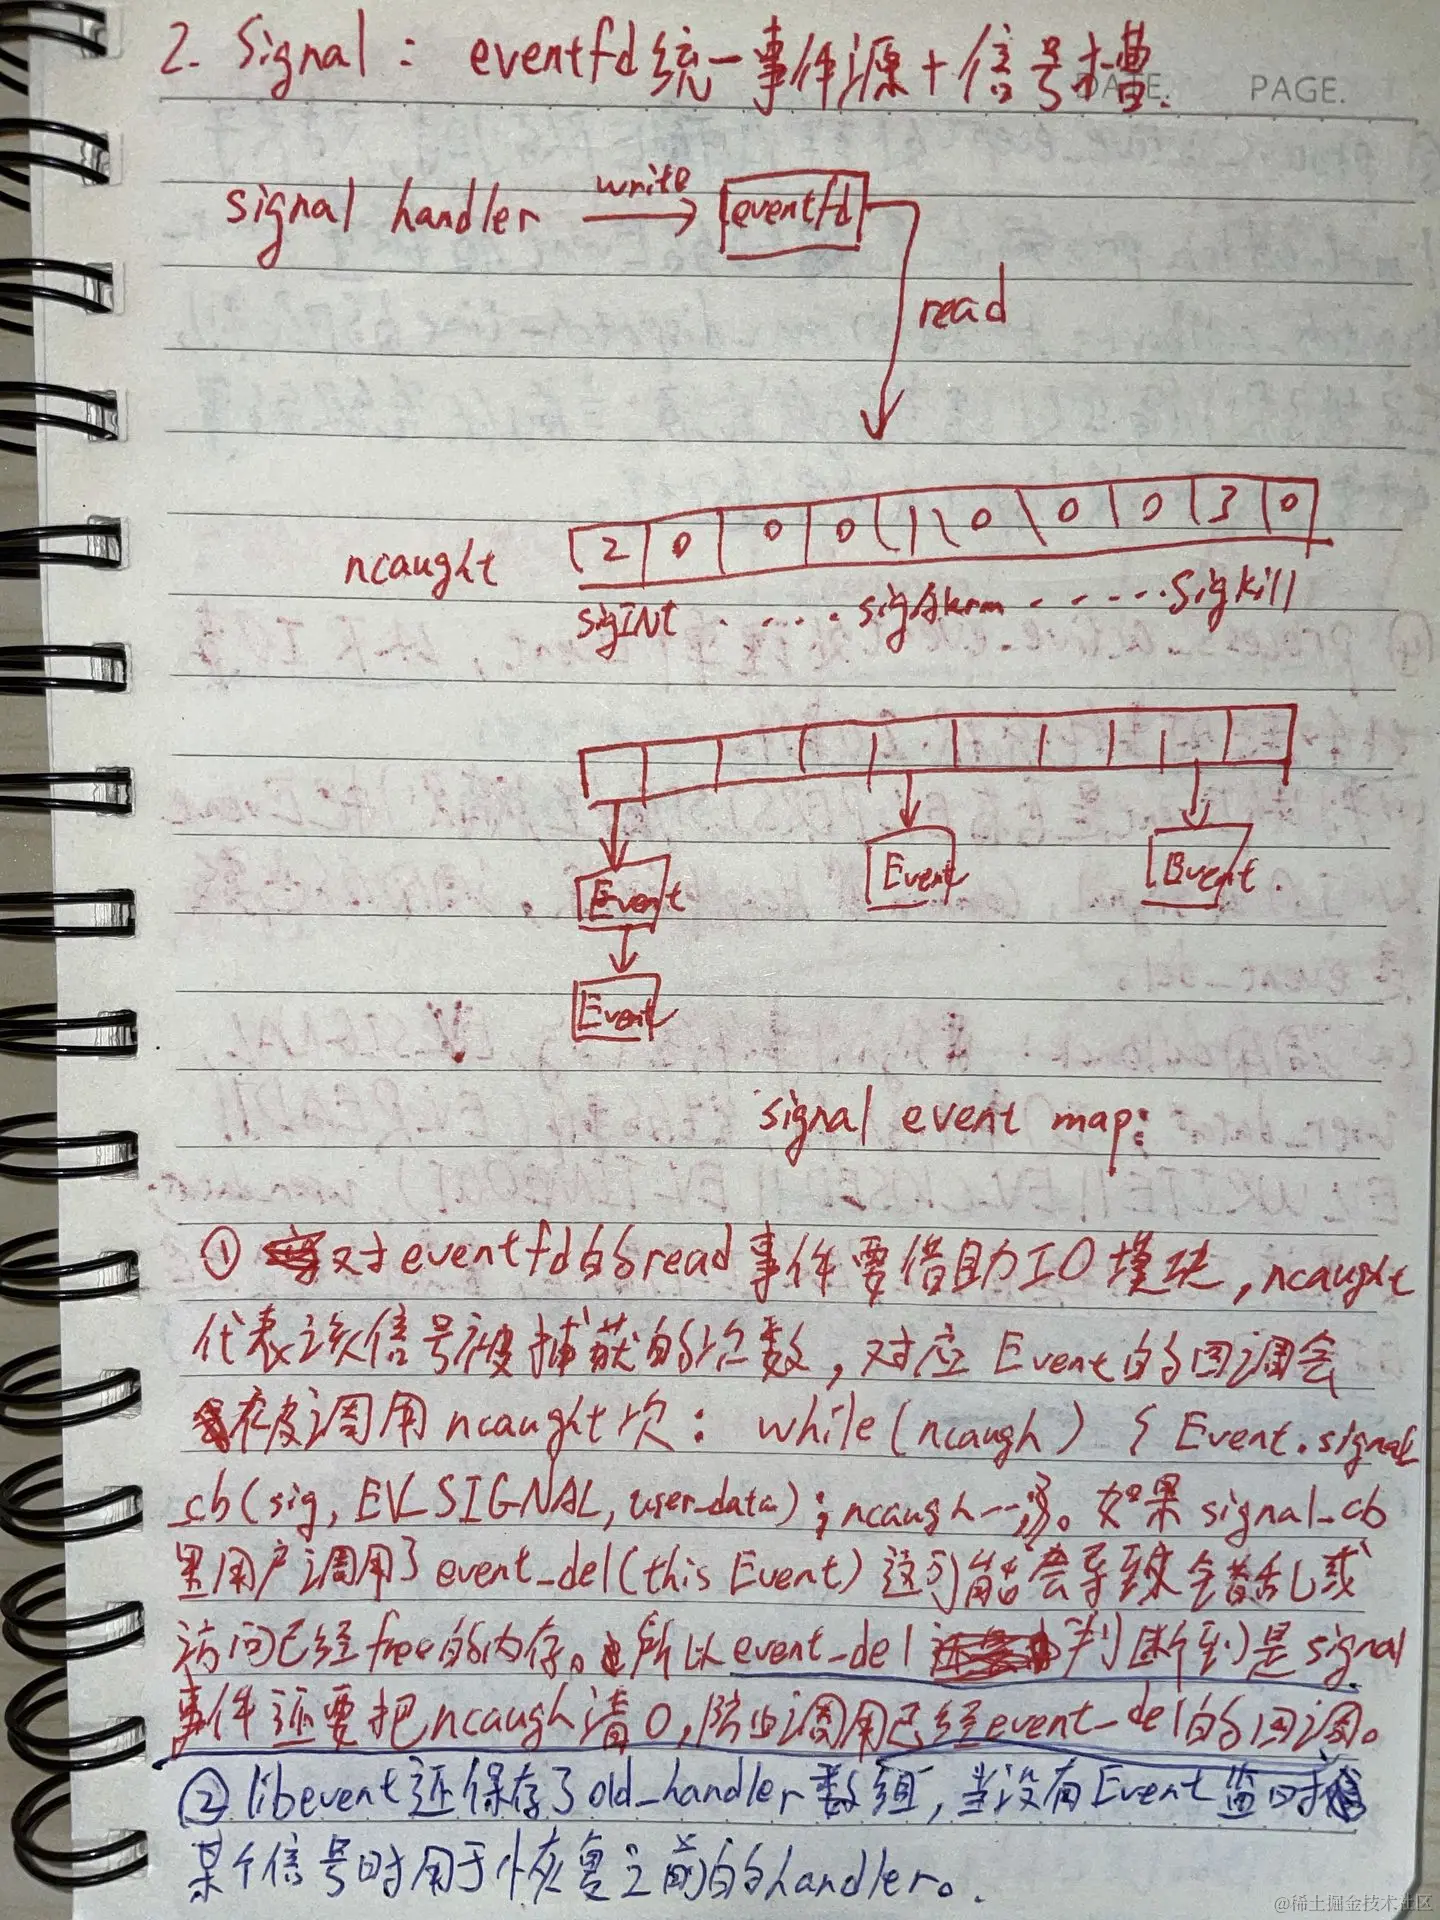 2. Signal: eventfd统一事件源+信号槽.
DATE. PAGE.
signal handler write eventfd
read
ncaught 2 0 0 0 1 0 0 0 3 0
sigINT ..... sigAlarm ...... sigkill
Event Event Event.
Event
signal event map:
① 对eventfd的read事件要借助IO模块,ncaught
代表该信号被捕获的次数,对应Event的回调会
被调用ncaught次: while(ncaugh) { Event.signal
_cb(sig, EV_SIGNAL, user_data); ncaugh--;}。如果signal_cb
里用户调用了event_del(this Event)这可能会导致会错乱或
访问已经free的内存。所以event_del判断到是signal
事件还要把ncaugh清0,防止调用已经event_del的回调。
② libevent还保存了old_handler数组,当没有Event监听
某个信号时用于恢复之前的handler。
@稀土掘金技术社区